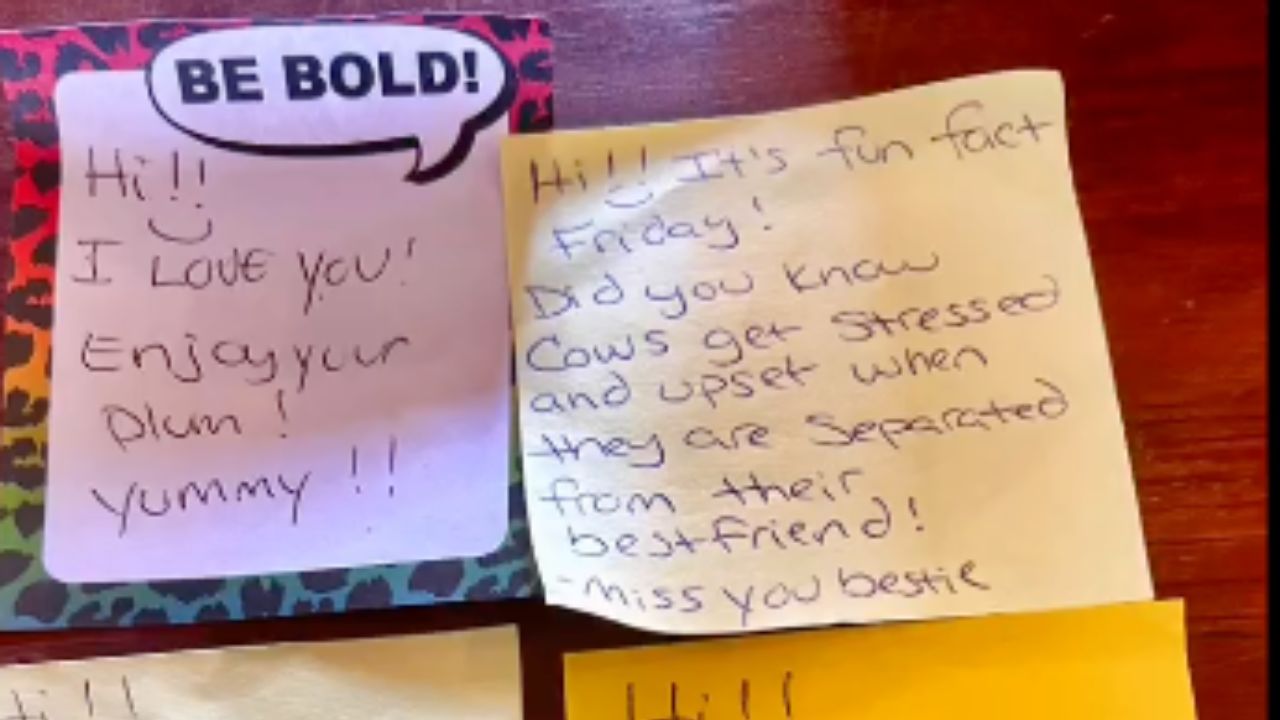 BE BOLD!
Hi!!
I LOVE YOU!
Enjoy your
Plum!
Yummy!!
Hi!! It's fun fact
Friday!
Did you know
Cows get stressed
and upset when
they are separated
from their
bestfriend!
-miss you bestie
Hi!!
Hi!!